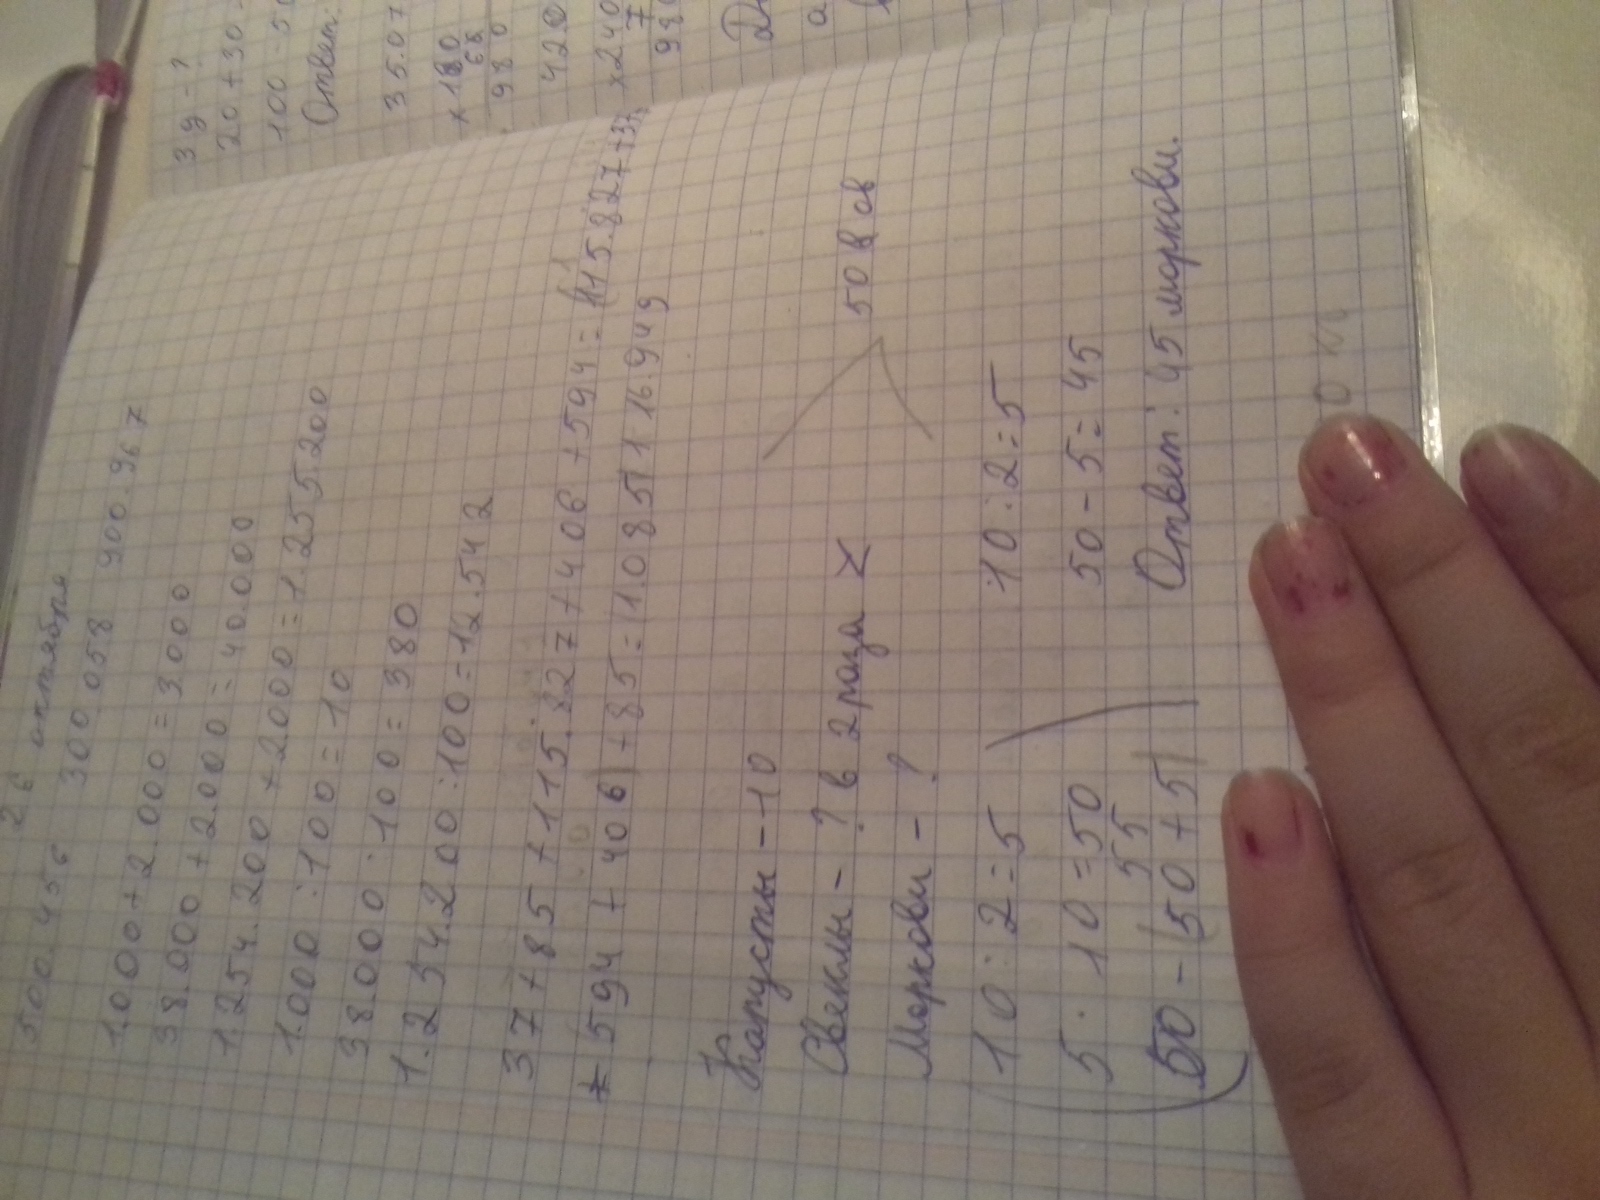 26 октября
500.456 300.058 900.967
1.000+2.000=3.000
38.000+2.000=40.000
1.254.200+2000=1.255.200
1.000:100=10
38.000:100=380
1.254.200:100=12.542
37+85+1115.827+406+594=(1115.827+37)
+594+406)+85=(1.0851116.949
Капусты-10
Свеклы-? в 2 раза <
Моркови-?
50 к ов
10:2=5
5·10=50
55
50-(50+5)
10:2=5
50-5=45
Ответ: 45 моркови.
39-?
20+30
100-50
Ответ:
35.07
98 0
420
×240
7